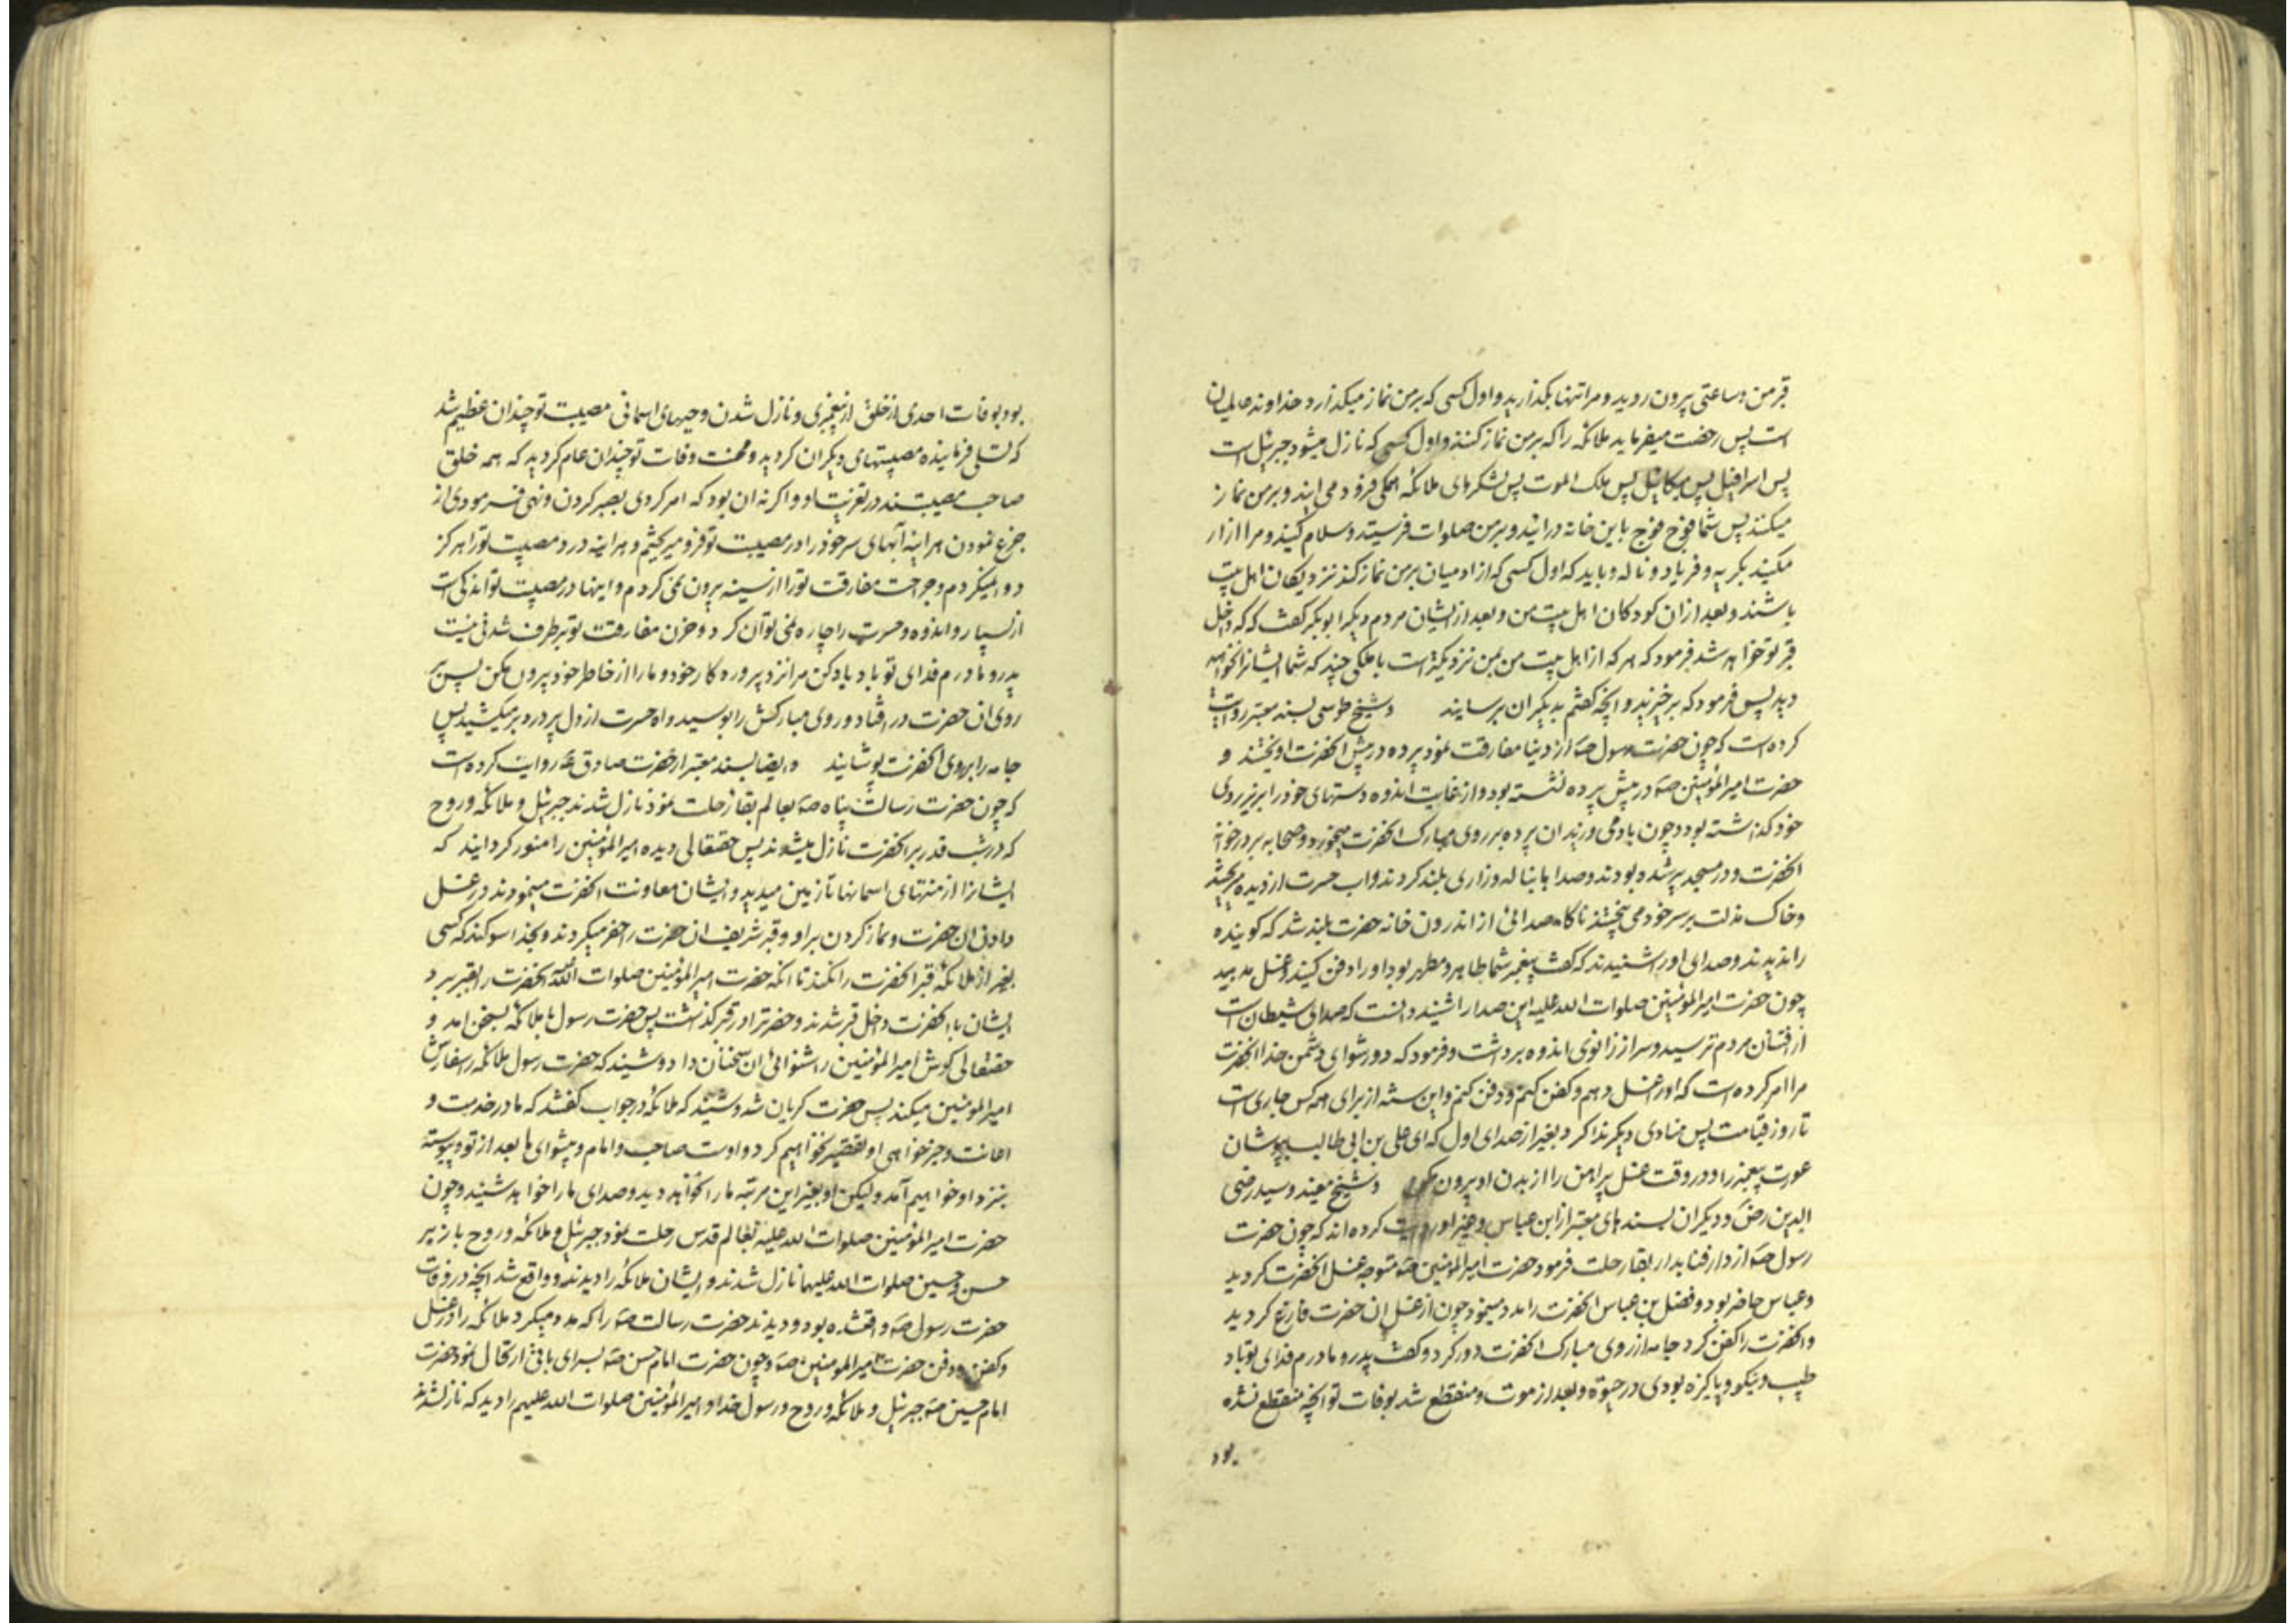 قبر من و ساعتی بیرون روید و مرا تنها بگذارید و اول کسی که بر من نماز میگذارد خداوند عالمیان
است پس رخصت میفرماید ملائکه را که بر من نماز کنند و اول کسی که نازل میشود جبرئیل است
پس اسرافیل پس میکائیل پس ملک الموت پس لشکرهای ملائکه همگی فرود می ایند و بر من نماز
میکنند پس شما فوج فوج باین خانه درائید و بر من صلوات فرستید و سلام کنید و مرا ازار
مکنید بگریه و فریاد و ناله و باید که اول کسی که از ادمیان بر من نماز کند نزدیکان اهل بیت
باشند و بعد ازان کودکان اهل بیت من و بعد از ایشان مردم دیگر ابوبکر گفت که که داخل
قبر تو خواهد شد فرمود که هر که از اهل بیت من بمن نزدیکتر است با ملکی چند که شما ایشانرا نخواهید
دید پس فرمود که برخیزید و انچه گفتم بدیگران برسانید و شیخ طوسی بسند معتبر روایت
کرده است که چون حضرت رسول ص از دنیا مفارقت نمود پرده در پیش انحضرت اویختند و
حضرت امیرالمؤمنین ص در پیش پرده نشسته بود و از غایت اندوه دستهای خود را بر زیر روی
خود گذاشته بود و چون باد می وزید ان پرده بر روی مبارک انحضرت میخورد و صحابه بر در خانه
انحضرت و در مسجد پر شده بودند و صدا بناله و زاری بلند کردند و اب حسرت از دیده میریختند
و خاک مذلت بر سر خود می بیختند ناگاه صدائی از اندرون خانه حضرت بلند شد که گوینده
را ندیدند و صدای او را شنیدند که گفت پیغمبر شما طاهر و مطهر بود او را دفن کنید و غسل مدهید
چون حضرت امیرالمؤمنین صلوات الله علیه این صدا را شنید دانست که صدای شیطان است
از افتتان مردم ترسید و سر از زانوی اندوه برداشت و فرمود که دور شو ای دشمن خدا انحضرت
مرا امر کرده است که او را غسل دهم و کفن کنم و دفن کنم و این سنت از برای همه کس جاری است
تا روز قیامت پس منادی دیگر ندا کرد بغیر از صدای اول که ای علی بن ابی طالب بپوشان
عورت پیغمبر را و در وقت غسل پیراهن را از بدن او بیرون مکن و شیخ مفید و سید رضی
الدین رض و دیگران بسندهای معتبر از ابن عباس و غیر او روایت کرده اند که چون حضرت
رسول ص از دار فنا بدار بقا رحلت فرمود حضرت امیرالمؤمنین ص متوجه غسل انحضرت گردید
و عباس حاضر بود و فضل بن عباس انحضرت را مدد مینمود چون از غسل ان حضرت فارغ گردید
و انحضرت را کفن کرد جامه از روی مبارک انحضرت دور کرد و گفت پدر و مادرم فدای تو باد
طیب و نیکو و پاکیزه بودی در حیوة و بعد از موت و منقطع شد بوفات تو انچه منقطع نشده
بود
بود بوفات احدی از خلق از پیغمبری و نازل شدن وحیهای اسمانی مصیبت تو چندان عظیم شد
که تسلی فرماینده مصیبتهای دیگران گردید و محنت وفات تو چندان عام گردید که همه خلق
صاحب مصیبتند در تعزیت او و اگر نه ان بود که امر کردی بصبر کردن و نهی فرمودی از
جزع نمودن هر اینه آبهای سر خود را در مصیبت تو فرو میریختم و هر اینه درد مصیبت تو را هرگز
دوا نمیکردم و جراحت مفارقت تو را از سینه بیرون نمی کردم و اینها در مصیبت تو اندکی است
از بسیار و اندوه و حسرت را چاره نمی توان کرد و حزن مفارقت تو بر طرف شدنی نیست
پدر و مادرم فدای تو باد یاد کن مرا نزد پروردکار خود و ما را از خاطر خود بیرون مکن پس بر
روی ان حضرت در افتاد و روی مبارکش را بوسید و اه حسرت از دل پر درد بر میکشید پس
جامه را بر روی انحضرت پوشانید و ایضا بسند معتبر از حضرت صادق ع روایت کرده است
که چون حضرت رسالت پناه ص بعالم بقا رحلت نمود نازل شدند جبرئیل و ملائکه و روح
که در شب قدر بر انحضرت نازل میشوند پس حقتعالی دیده امیرالمؤمنین را منور گردانید که
ایشانرا از منتهای اسمانها تا زمین میدید و ایشان معاونت انحضرت مینمودند در غسل
دادن ان حضرت و نماز کردن بر او و قبر شریف ان حضرت را حفر میکردند و بخدا سوگند که کسی
بغیر از ملائکه قبر انحضرت را نکند تا انکه حضرت امیرالمؤمنین صلوات الله انحضرت را بقبر برد
ایشان با انحضرت داخل قبر شدند و حضرترا در قبر گذاشت پس حضرت رسول با ملائکه بسخن امد و
حقتعالی گوش امیرالمؤمنین را شنوائی ان سخنان داد و شنید که حضرت رسول ملائکه را سفارش
امیرالمؤمنین میکند پس حضرت گریان شد و شنید که ملائکه در جواب گفتند که ما در خدمت و
اعانت و خیرخواهی او تقصیر نخواهیم کرد و اوست صاحب و امام و پیشوای ما بعد از تو و پیوسته
بنزد او خواهیم آمد و لیکن او بغیر این مرتبه ما را نخواهد دید و صدای ما را خواهد شنید و چون
حضرت امیرالمؤمنین صلوات الله علیه بعالم قدس رحلت نمود جبرئیل و ملائکه و روح باز بر
حسن و حسین صلوات الله علیهما نازل شدند و ایشان ملائکه را دیدند و واقع شد انچه در وفات
حضرت رسول ص واقع شده بود و دیدند حضرت رسالت ص را که مدد میکرد ملائکه را در غسل
و کفن و دفن حضرت امیرالمؤمنین ص و چون حضرت امام حسن ص بسرای باقی ارتحال نمود حضرت
امام حسین ص جبرئیل و ملائکه و روح و رسول خدا و امیرالمؤمنین صلوات الله علیهم را دید که نازل شدند